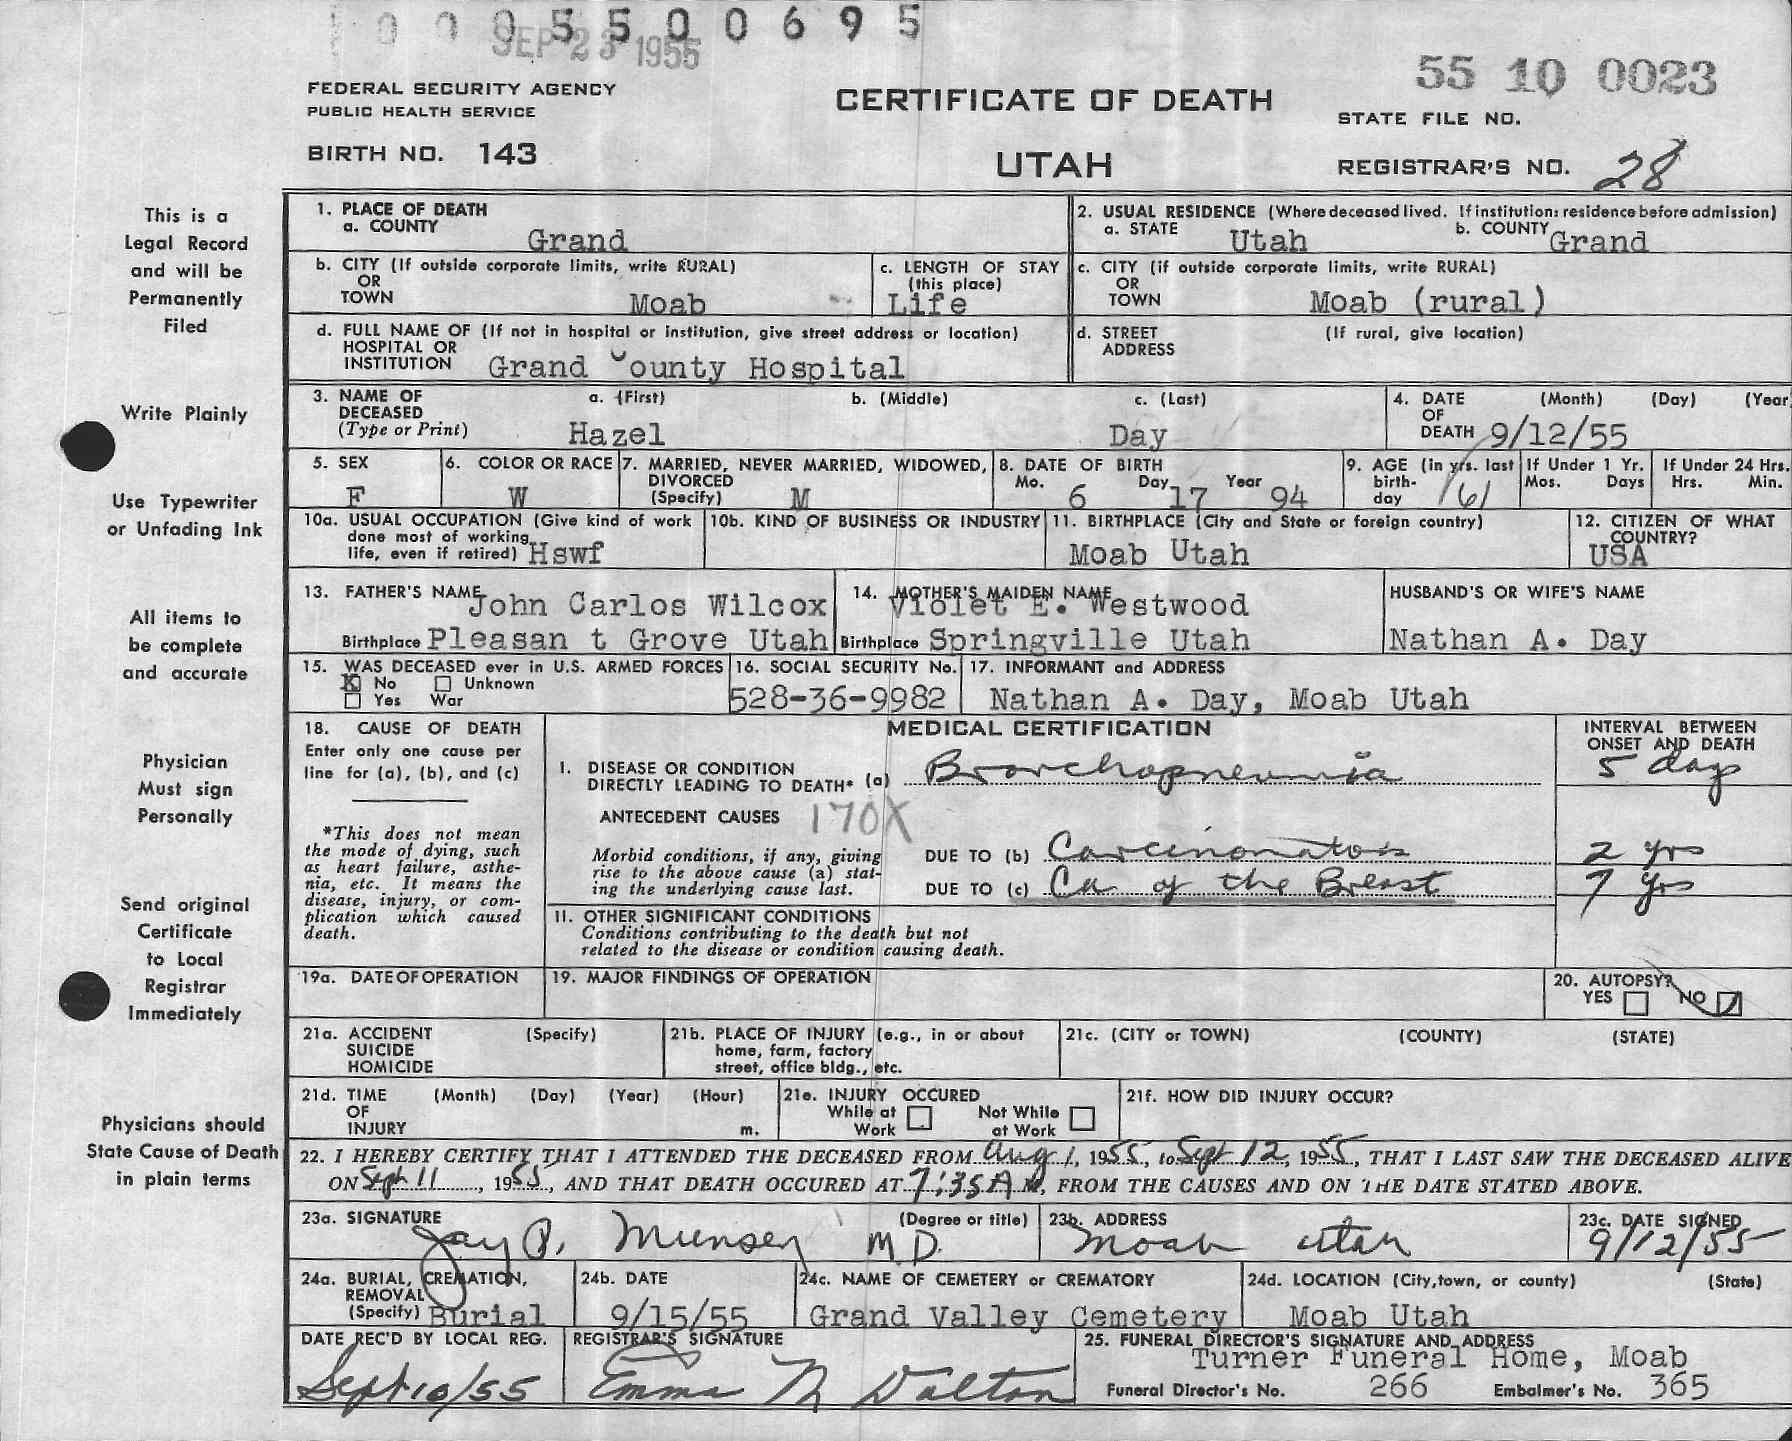 0 0 0 5 5 0 0 6 9 5
SEP 23 1955
55 10 0023
FEDERAL SECURITY AGENCY
PUBLIC HEALTH SERVICE
CERTIFICATE OF DEATH
STATE FILE NO.
BIRTH NO. 143
UTAH
REGISTRAR'S NO. 28
This is a
Legal Record
and will be
Permanently
Filed
Write Plainly
Use Typewriter
or Unfading Ink
All items to
be complete
and accurate
Physician
Must sign
Personally
Send original
Certificate
to Local
Registrar
Immediately
Physicians should
State Cause of Death
in plain terms
1. PLACE OF DEATH
a. COUNTY Grand
2. USUAL RESIDENCE (Where deceased lived. If institution: residence before admission)
a. STATE Utah b. COUNTY Grand
b. CITY (If outside corporate limits, write RURAL)
OR
TOWN Moab
c. LENGTH OF STAY
(this place)
Life
c. CITY (if outside corporate limits, write RURAL)
OR
TOWN Moab (rural)
d. FULL NAME OF (If not in hospital or institution, give street address or location)
HOSPITAL OR
INSTITUTION Grand County Hospital
d. STREET (If rural, give location)
ADDRESS
3. NAME OF a. (First) b. (Middle) c. (Last)
DECEASED
(Type or Print) Hazel Day
4. DATE (Month) (Day) (Year
OF
DEATH 9/12/55
5. SEX
F
6. COLOR OR RACE
W
7. MARRIED, NEVER MARRIED, WIDOWED,
DIVORCED
(Specify) M
8. DATE OF BIRTH
Mo. Day Year
6 17 94
9. AGE (in yrs. last
birth-
day 61
If Under 1 Yr.
Mos. Days
If Under 24 Hrs.
Hrs. Min.
10a. USUAL OCCUPATION (Give kind of work
done most of working
life, even if retired) Hswf
10b. KIND OF BUSINESS OR INDUSTRY
11. BIRTHPLACE (City and State or foreign country)
Moab Utah
12. CITIZEN OF WHAT
COUNTRY?
USA
13. FATHER'S NAME John Carlos Wilcox
Birthplace Pleasan t Grove Utah
14. MOTHER'S MAIDEN NAME
Violet E. Westwood
Birthplace Springville Utah
HUSBAND'S OR WIFE'S NAME
Nathan A. Day
15. WAS DECEASED ever in U.S. ARMED FORCES
X No Unknown
Yes War
16. SOCIAL SECURITY No.
528-36-9982
17. INFORMANT and ADDRESS
Nathan A. Day, Moab Utah
18. CAUSE OF DEATH
Enter only one cause per
line for (a), (b), and (c)
*This does not mean
the mode of dying, such
as heart failure, asthe-
nia, etc. It means the
disease, injury, or com-
plication which caused
death.
MEDICAL CERTIFICATION
INTERVAL BETWEEN
ONSET AND DEATH
I. DISEASE OR CONDITION
DIRECTLY LEADING TO DEATH* (a) Bronchopneumonia 5 days
ANTECEDENT CAUSES 170X
Morbid conditions, if any, giving
rise to the above cause (a) stat-
ing the underlying cause last.
DUE TO (b) Carcinomatosis 2 yrs
DUE TO (c) Ca of the Breast 7 yrs
II. OTHER SIGNIFICANT CONDITIONS
Conditions contributing to the death but not
related to the disease or condition causing death.
19a. DATE OF OPERATION
19. MAJOR FINDINGS OF OPERATION
20. AUTOPSY?
YES NO
21a. ACCIDENT (Specify)
SUICIDE
HOMICIDE
21b. PLACE OF INJURY (e.g., in or about
home, farm, factory
street, office bldg., etc.
21c. (CITY or TOWN) (COUNTY) (STATE)
21d. TIME (Month) (Day) (Year) (Hour)
OF
INJURY m.
21e. INJURY OCCURED
While at Not While
Work at Work
21f. HOW DID INJURY OCCUR?
22. I HEREBY CERTIFY THAT I ATTENDED THE DECEASED FROM Aug 1, 1955, to Sept 12, 1955, THAT I LAST SAW THE DECEASED ALIVE
ON Sept 11, 1955, AND THAT DEATH OCCURED AT 7:35 A M, FROM THE CAUSES AND ON THE DATE STATED ABOVE.
23a. SIGNATURE (Degree or title)
Jay P. Munsey M.D.
23b. ADDRESS
Moab Utah
23c. DATE SIGNED
9/12/55
24a. BURIAL, CREMATION,
REMOVAL
(Specify) Burial
24b. DATE
9/15/55
24c. NAME OF CEMETERY or CREMATORY
Grand Valley Cemetery
24d. LOCATION (City, town, or county) (State)
Moab Utah
DATE REC'D BY LOCAL REG.
Sept 10/55
REGISTRAR'S SIGNATURE
Emma M Dalton
25. FUNERAL DIRECTOR'S SIGNATURE AND ADDRESS
Turner Funeral Home, Moab
Funeral Director's No. 266 Embalmer's No. 365